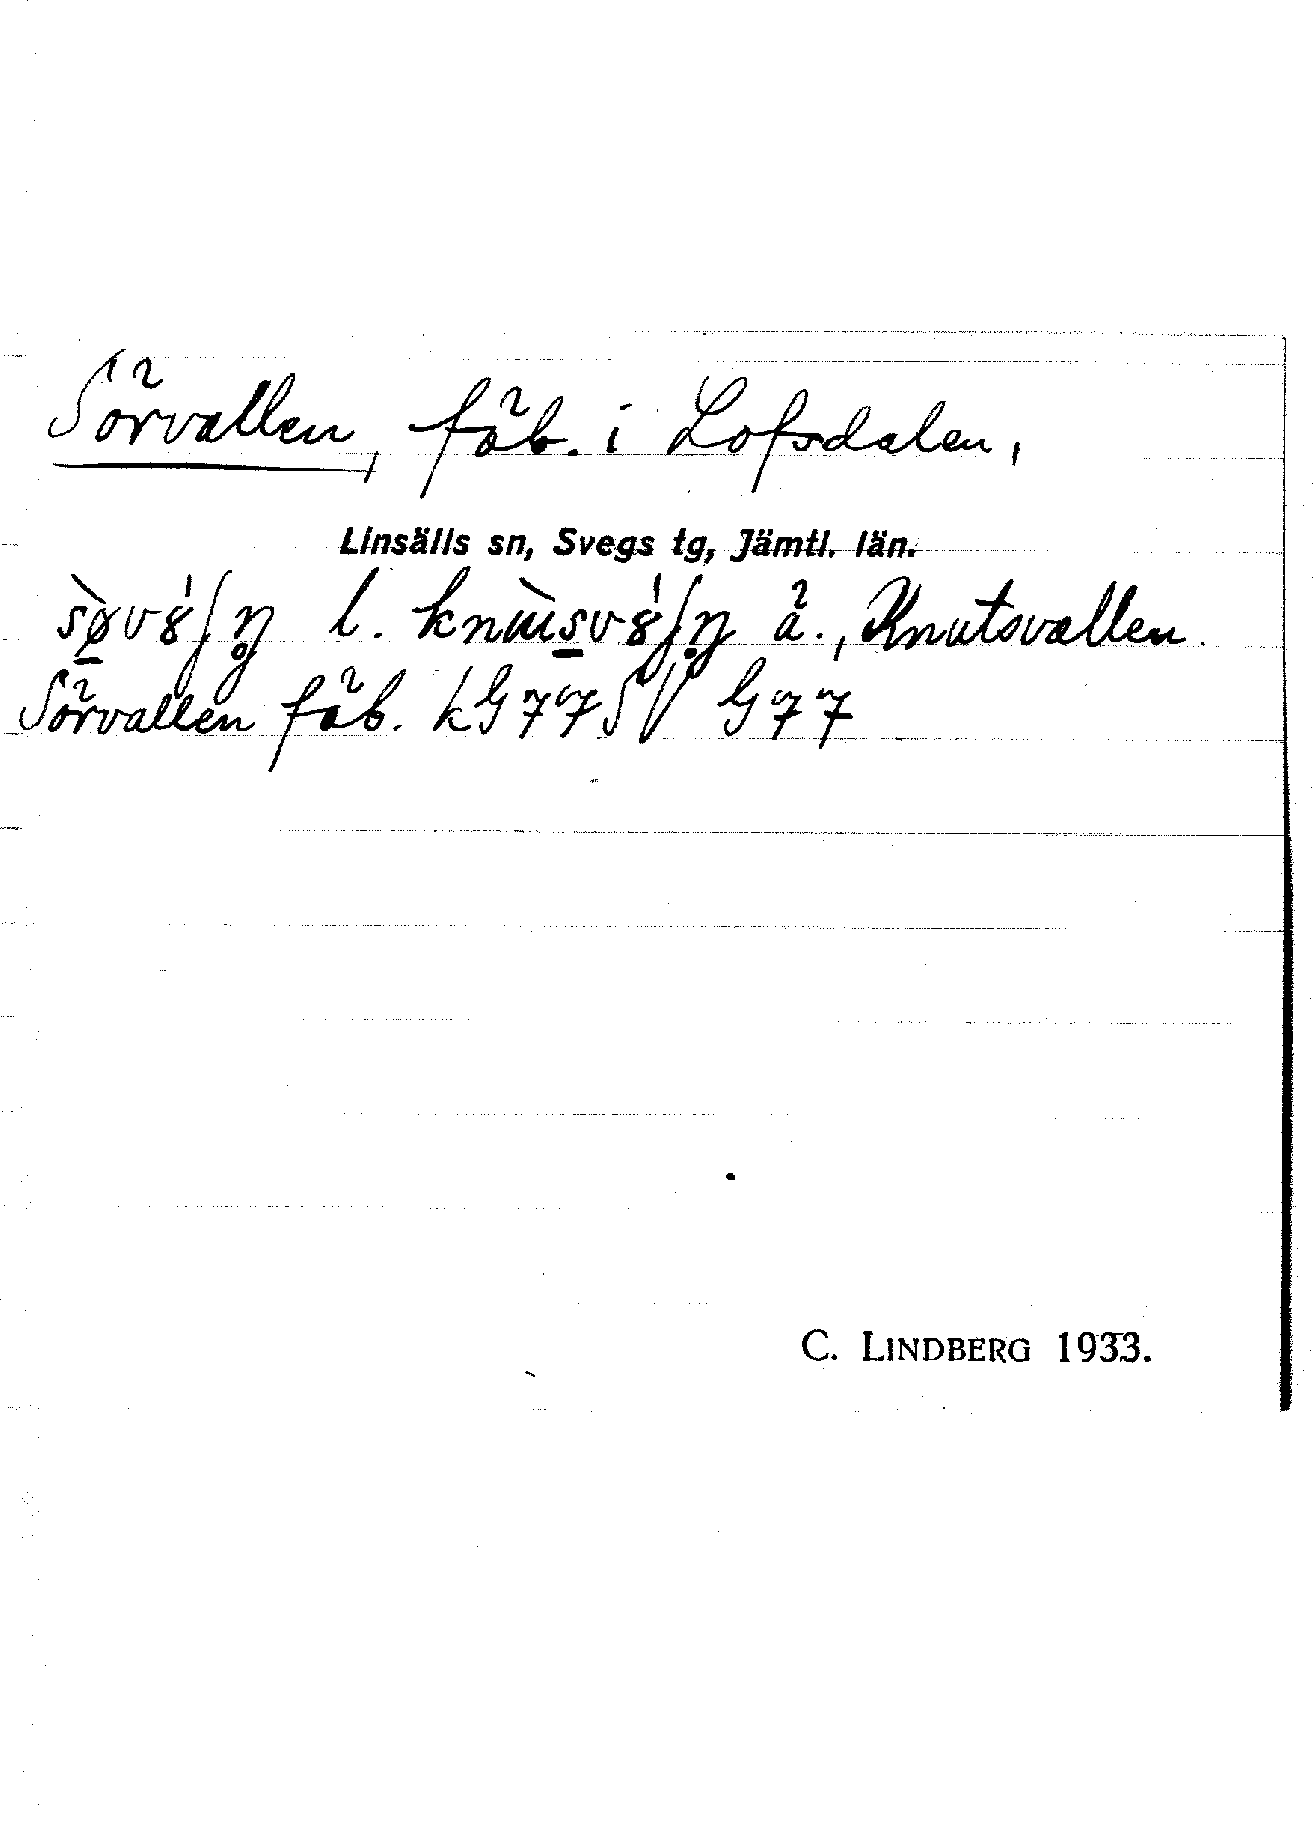 Sörvallen, fäb. i Lofsdalen,
Linsälls sn, Svegs tg, Jämtl. län.
l. å., Knutsvallen.
Sörvallen fäb. kG77SV G77
C. LINDBERG 1933.